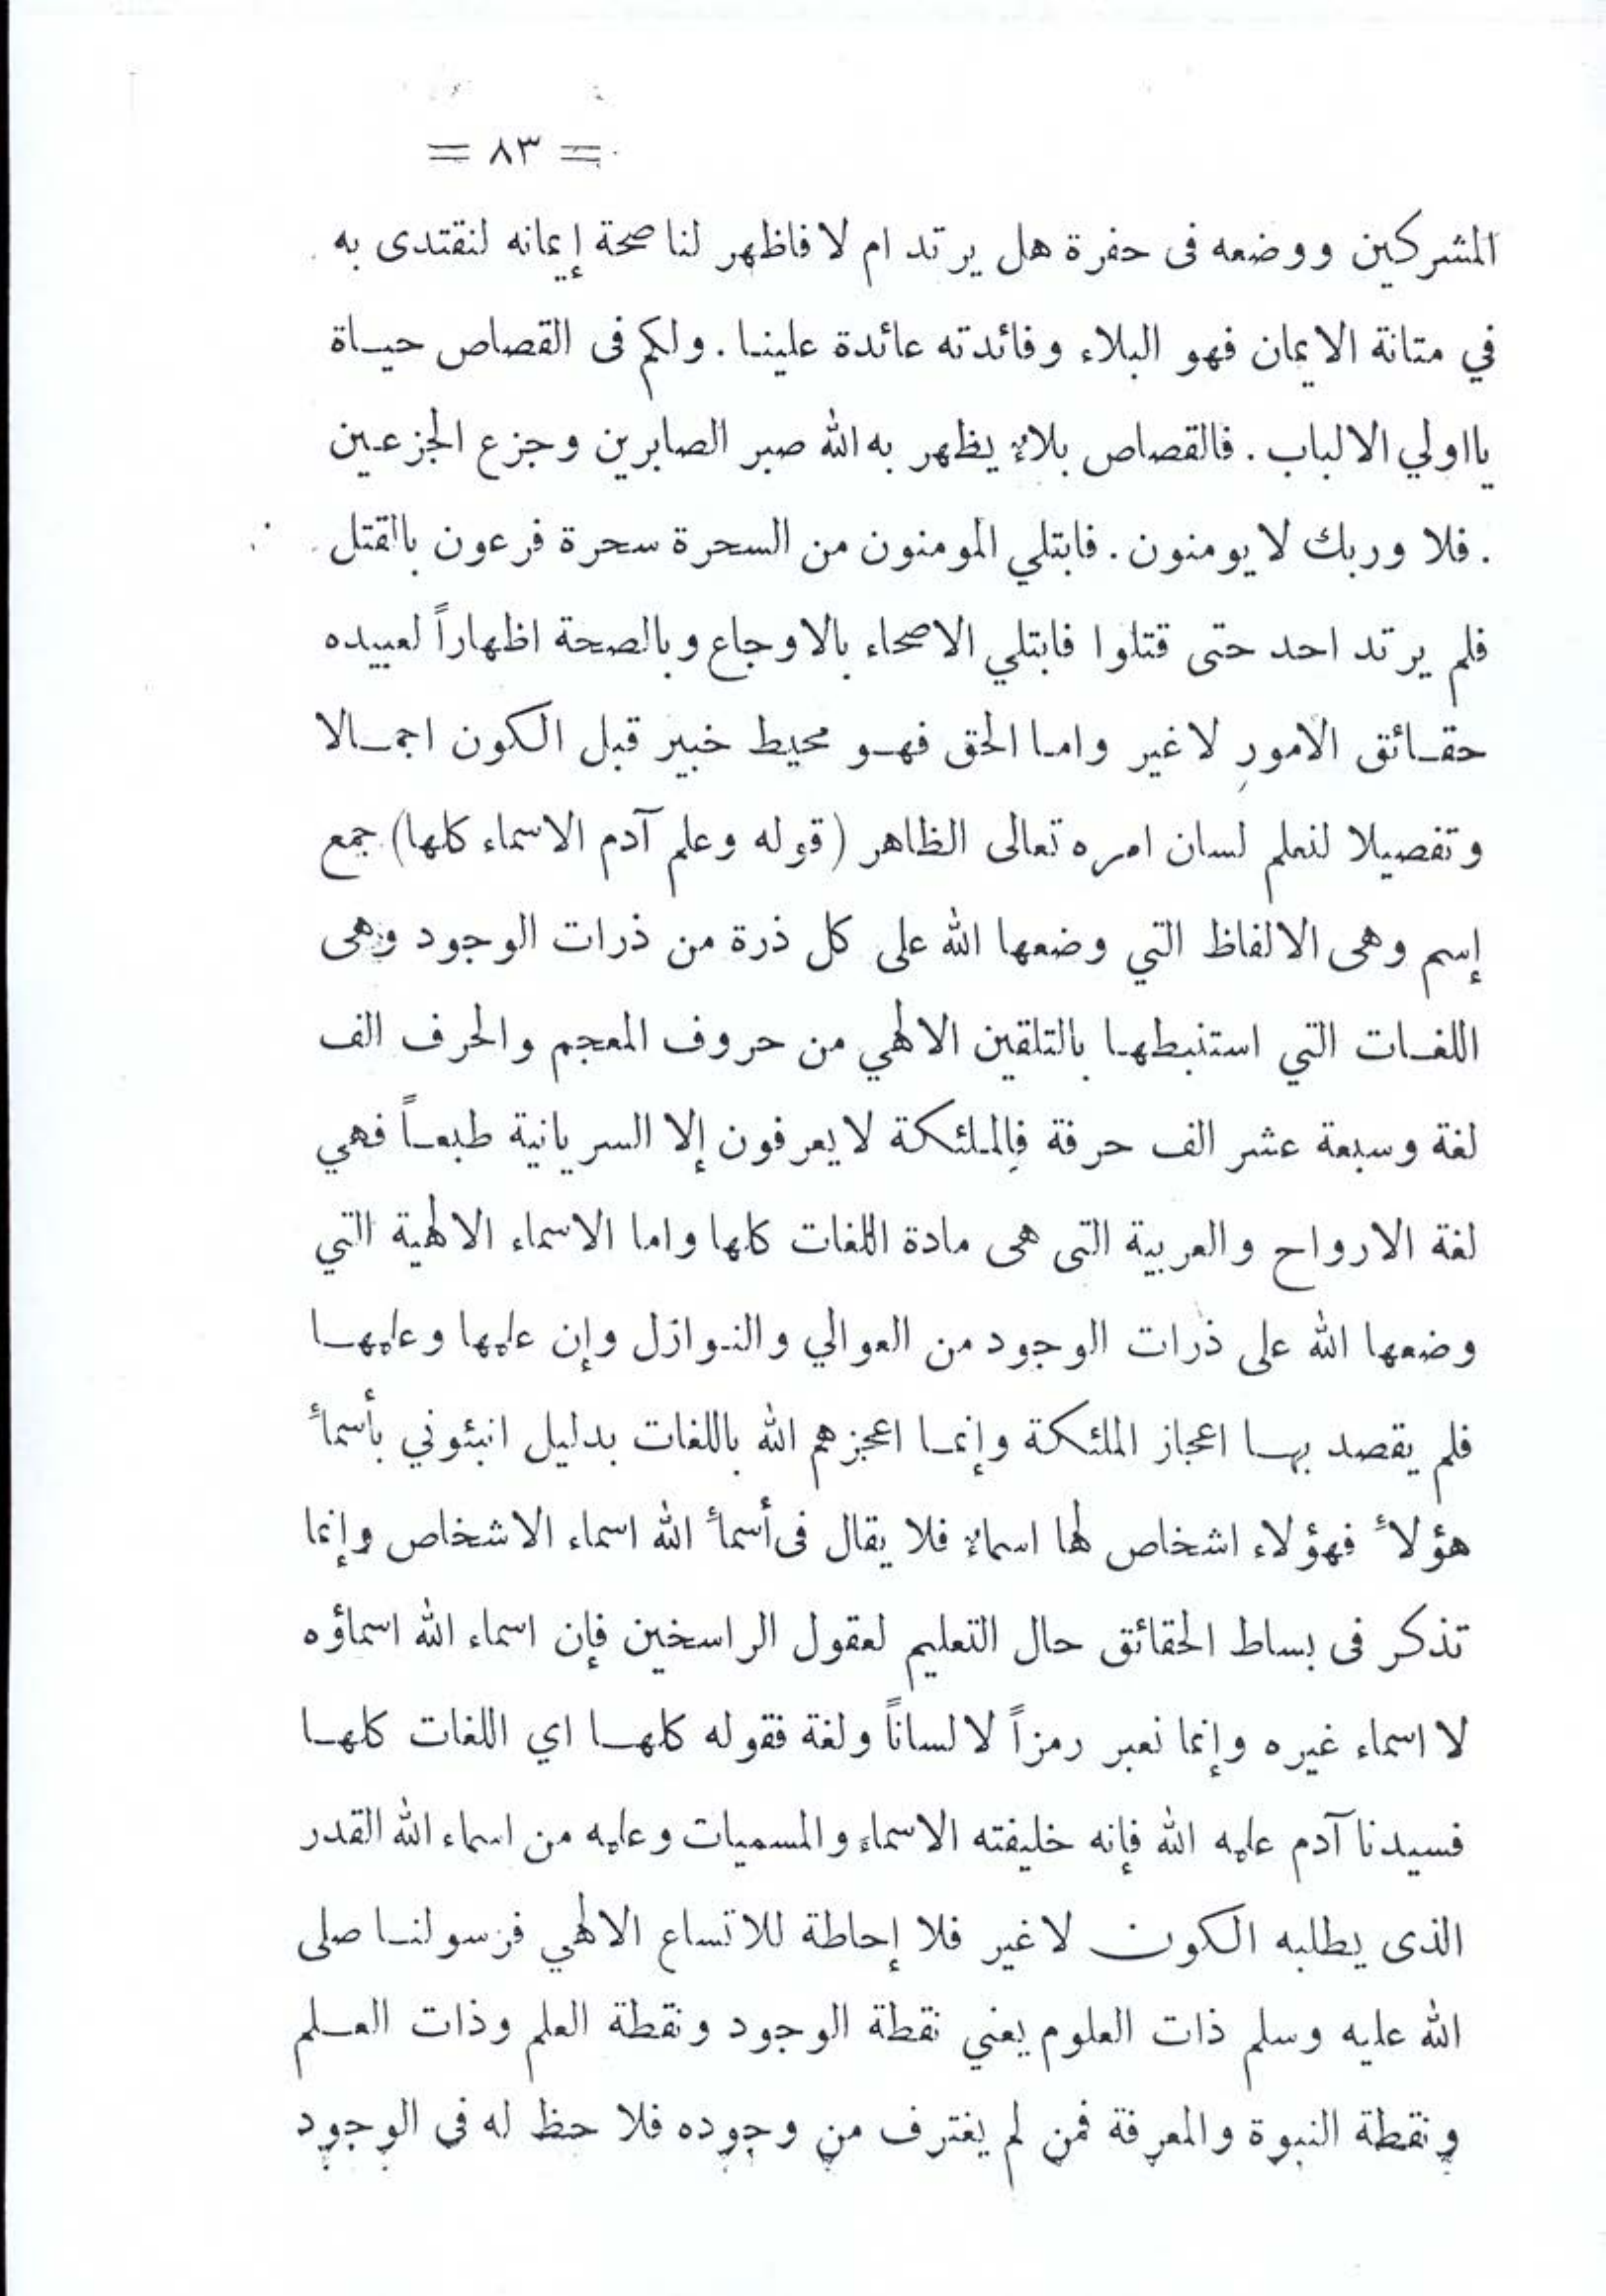 = ٨٣ =
المشركين ووضعه فى حفرة هل يرتد ام لا فاظهر لنا صحة إيمانه لنقتدى به
في متانة الايمان فهو البلاء وفائدته عائدة علينا . ولكم فى القصاص حياة
يااولي الالباب . فالقصاص بلاءٌ يظهر به الله صبر الصابرين وجزع الجزعين
. فلا وربك لا يومنون . فابتلي المومنون من السحرة سحرة فرعون بالقتل
فلم يرتد احد حتى قتلوا فابتلي الاصحاء بالاوجاع وبالصحة اظهاراً لعبيده
حقائق الامور لا غير واما الحق فهو محيط خبير قبل الكون اجمالا
وتفصيلا لنعلم لسان امره تعالى الظاهر (قوله وعلم آدم الاسماء كلها) جمع
إسم وهى الالفاظ التي وضعها الله على كل ذرة من ذرات الوجود وهى
اللغات التي استنبطها بالتلقين الالهي من حروف المعجم والحرف الف
لغة وسبعة عشر الف حرفة فالملئكة لا يعرفون إلا السريانية طبعاً فهي
لغة الارواح والعربية التى هى مادة اللغات كلها واما الاسماء الالهية التي
وضعها الله على ذرات الوجود من العوالي والنوازل وإن عليها وعليها
فلم يقصد بها اعجاز الملئكة وإنما اعجزهم الله باللغات بدليل انبئوني بأسمأ
هؤلأ فهؤلاء اشخاص لها اسماءٌ فلا يقال فى أسمأ الله اسماء الاشخاص وإنما
تذكر فى بساط الحقائق حال التعليم لعقول الراسخين فإن اسماء الله اسماؤه
لا اسماء غيره وإنما نعبر رمزاً لا لساناً ولغة فقوله كلها اي اللغات كلها
فسيدنا آدم علمه الله فإنه خليفته الاسماء والمسميات وعلمه من اسماء الله القدر
الذى يطلبه الكون لا غير فلا إحاطة للاتساع الالهي فرسولنا صلى
الله عليه وسلم ذات العلوم يعني نقطة الوجود ونقطة العلم وذات العلم
ونقطة النبوة والمعرفة فمن لم يغترف من وجوده فلا حظ له في الوجود